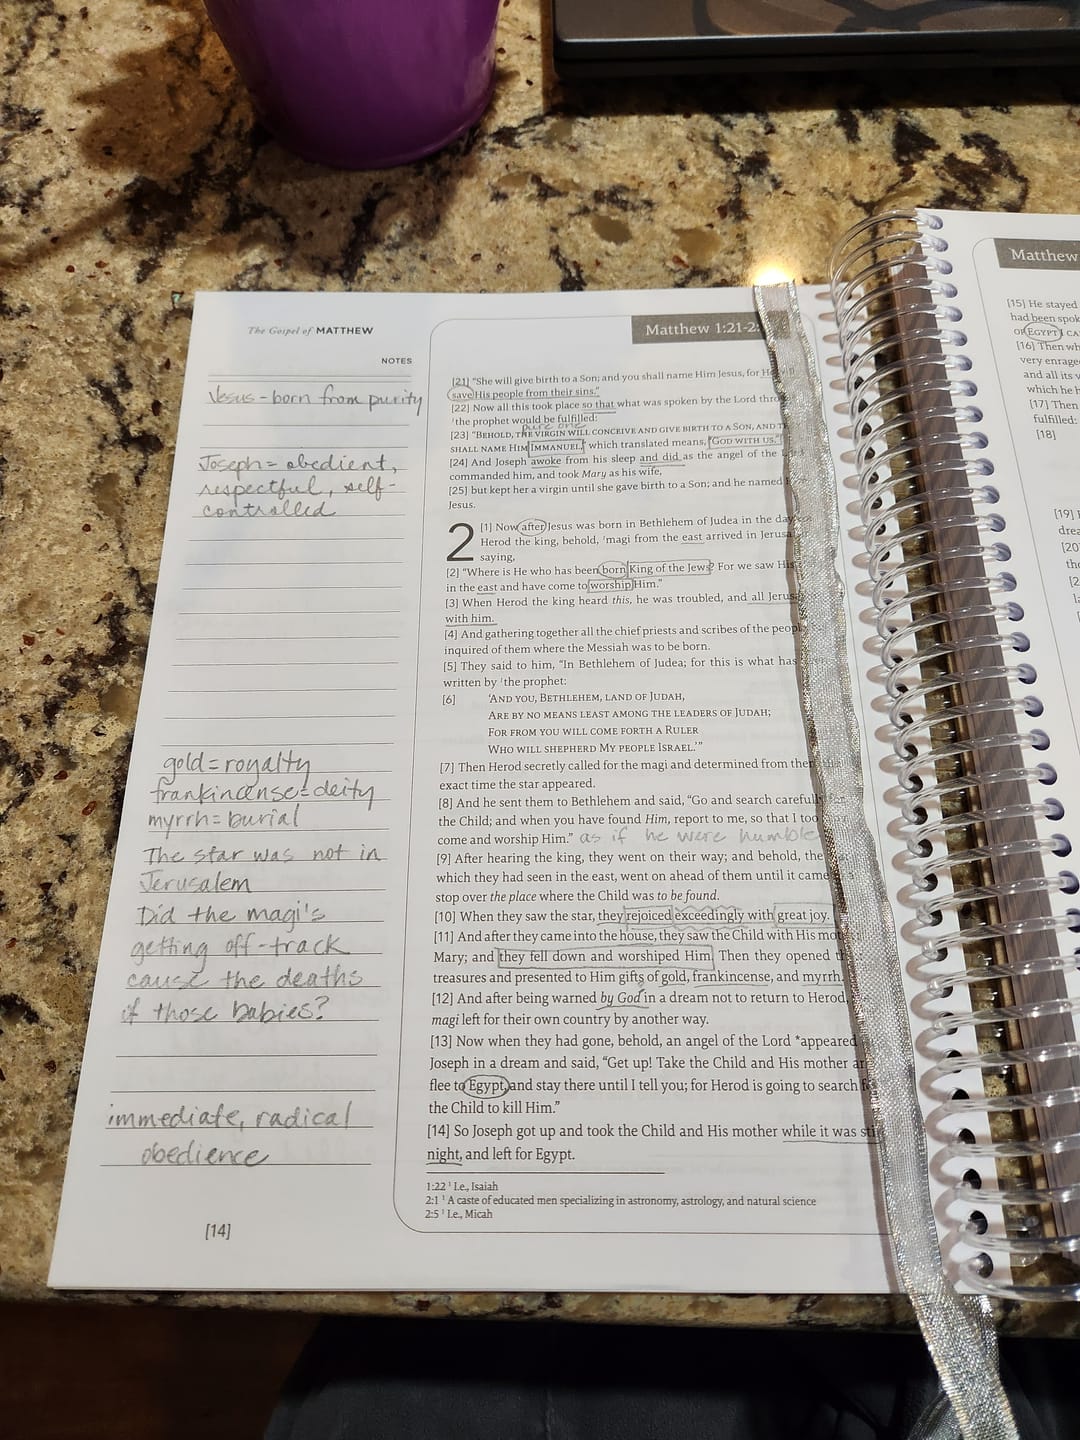 The Gospel of MATTHEW
NOTES
Jesus - born from purity
Joseph = obedient,
respectful, self-
controlled
gold = royalty
frankincense = deity
myrrh = burial
The star was not in
Jerusalem
Did the magi's
getting off-track
cause the deaths
of those babies?
immediate, radical
obedience
[14]
Matthew 1:21-2:
[21] "She will give birth to a Son; and you shall name Him Jesus, for He will
save His people from their sins."
[22] Now all this took place so that what was spoken by the Lord
¹the prophet would be fulfilled:
pure one
[23] "BEHOLD, THE VIRGIN WILL CONCEIVE AND GIVE BIRTH TO A SON, AND
SHALL NAME HIM IMMANUEL," which translated means, "GOD WITH US."
[24] And Joseph awoke from his sleep and did as the angel of the Lord
commanded him, and took Mary as his wife,
[25] but kept her a virgin until she gave birth to a Son; and he named
Jesus.
2 [1] Now after Jesus was born in Bethlehem of Judea in the days
Herod the king, behold, ¹magi from the east arrived in
saying,
[2] "Where is He who has been born King of the Jews? For we saw His
in the east and have come to worship Him."
[3] When Herod the king heard this, he was troubled, and all
with him.
[4] And gathering together all the chief priests and scribes of the
inquired of them where the Messiah was to be born.
[5] They said to him, "In Bethlehem of Judea; for this is what has
written by ¹the prophet:
[6] 'AND YOU, BETHLEHEM, LAND OF JUDAH,
ARE BY NO MEANS LEAST AMONG THE LEADERS OF JUDAH;
FOR FROM YOU WILL COME FORTH A RULER
WHO WILL SHEPHERD MY PEOPLE ISRAEL.'"
[7] Then Herod secretly called for the magi and determined from
exact time the star appeared.
[8] And he sent them to Bethlehem and said, "Go and search
the Child; and when you have found Him, report to me, so that I too
come and worship Him." as if he were humble
[9] After hearing the king, they went on their way; and behold, the
which they had seen in the east, went on ahead of them until it came
stop over the place where the Child was to be found.
[10] When they saw the star, they rejoiced exceedingly with great joy.
[11] And after they came into the house, they saw the Child with His
Mary; and they fell down and worshiped Him. Then they opened
treasures and presented to Him gifts of gold, frankincense, and myrrh.
[12] And after being warned by God in a dream not to return to Herod,
magi left for their own country by another way.
[13] Now when they had gone, behold, an angel of the Lord *appeared
Joseph in a dream and said, "Get up! Take the Child and His mother
flee to Egypt, and stay there until I tell you; for Herod is going to search
the Child to kill Him."
[14] So Joseph got up and took the Child and His mother while it was
night, and left for Egypt.
1:22 ¹ I.e., Isaiah
2:1 ¹ A caste of educated men specializing in astronomy, astrology, and natural science
2:5 ¹ I.e., Micah
Matthew
[15] He stayed
had been
OF EGYPT I
[16] Then
very
and all its
which he
[17] Then
fulfilled:
[18]
[19]